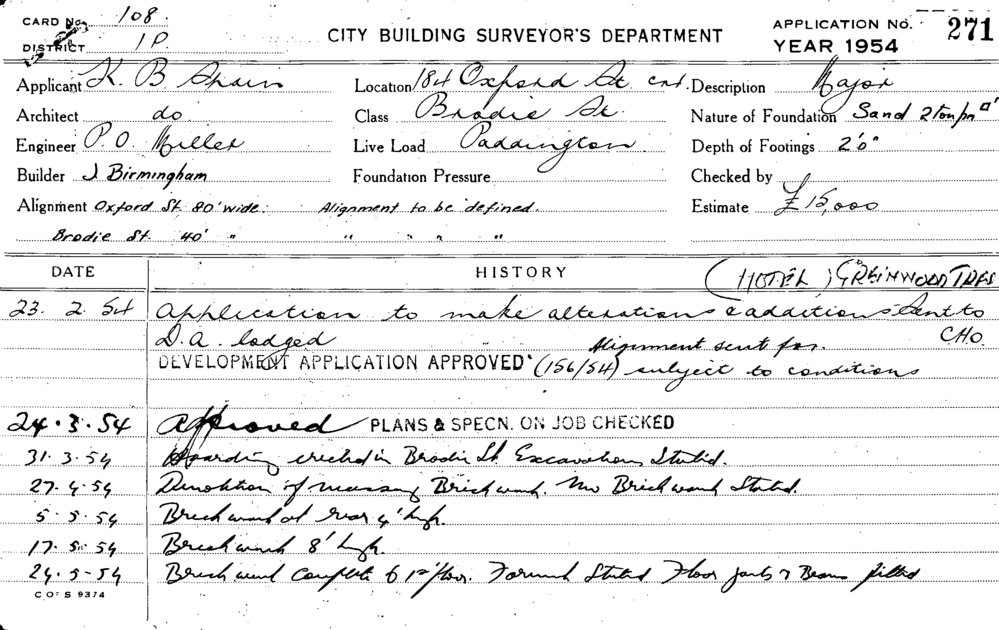 CARD No. 108.
DISTRICT 1P.
CITY BUILDING SURVEYOR'S DEPARTMENT
APPLICATION No. 271
YEAR 1954
Applicant K. B. Spain Location 184 Oxford St. cnr. Description Major
Architect do Class Brodie St. Nature of Foundation Sand 2 ton pn □'
Engineer P. O. Miller Live Load Paddington. Depth of Footings 2'6"
Builder J Birmingham Foundation Pressure Checked by
Alignment Oxford St. 80' wide. Alignment to be defined. Estimate £15,000
Brodie St. 40' " " " " "
DATE HISTORY
(HOTEL) GREENWOOD TREE
23. 2. 54 Application to make alterations & additions Sent to
D.A. lodged Alignment sent for. C.H.O.
DEVELOPMENT APPLICATION APPROVED (156/54) subject to conditions
24.3.54 Approved PLANS & SPECN. ON JOB CHECKED
31.3.54 Hoarding erected in Brodie St. Excavations Started.
27.4.54 Demolition of Brickwork. Brickwork Started.
5.5.54 Brickwork at rear 4' high.
17.5.54 Brickwork 8' high.
24.5-54 Brickwork Complete to 1st floor. Started Floor joists & Beams fitted
CO: S 9374